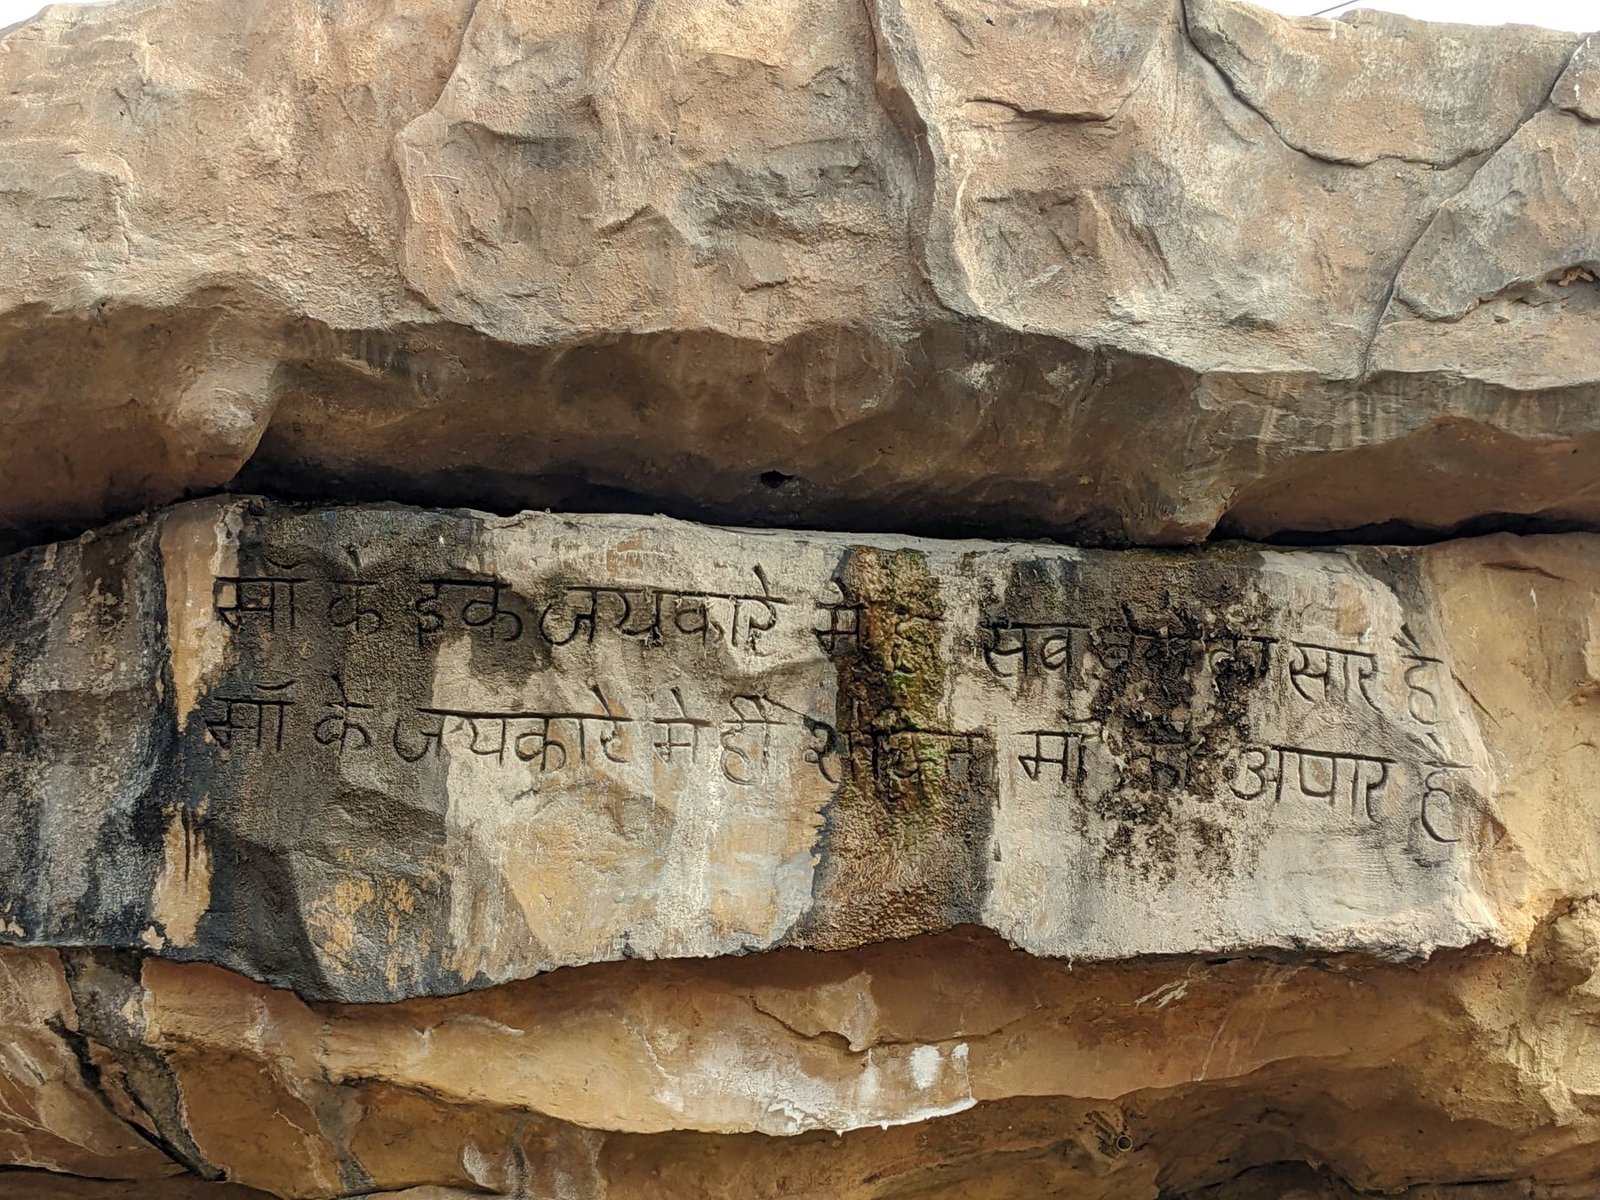 माँ के इक जयकारे मे सब का सार है
माँ के जयकारे मे ही शक्ति माँ की अपार है